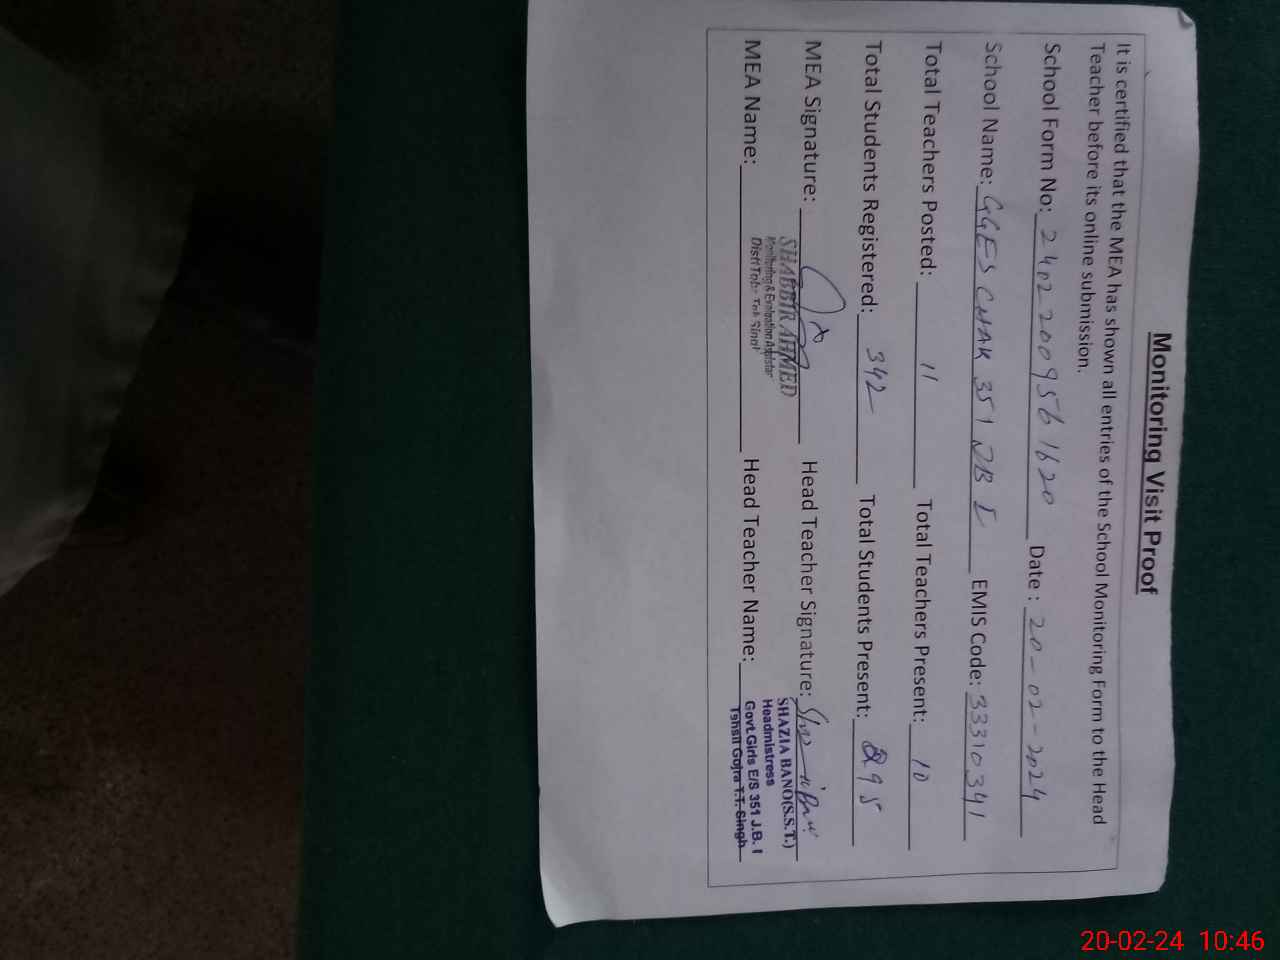 Monitoring Visit Proof
It is certified that the MEA has shown all entries of the School Monitoring Form to the Head
Teacher before its online submission.
School Form No: 24022009561620 Date : 20-02-2024
School Name: GGES CHAK 351 JB I EMIS Code: 33310341
Total Teachers Posted: 11 Total Teachers Present: 10
Total Students Registered: 342 Total Students Present: 295
MEA Signature: Head Teacher Signature:
SHABBIR AHMED
Monitoring & Evaluation Assistant
MEA Name: Head Teacher Name:
SHAZIA BANO(S.S.T.)
Headmistress
Govt.Girls E/S 351 J.B. I
Tehsil Gojra T.T. Singh
20-02-24 10:46